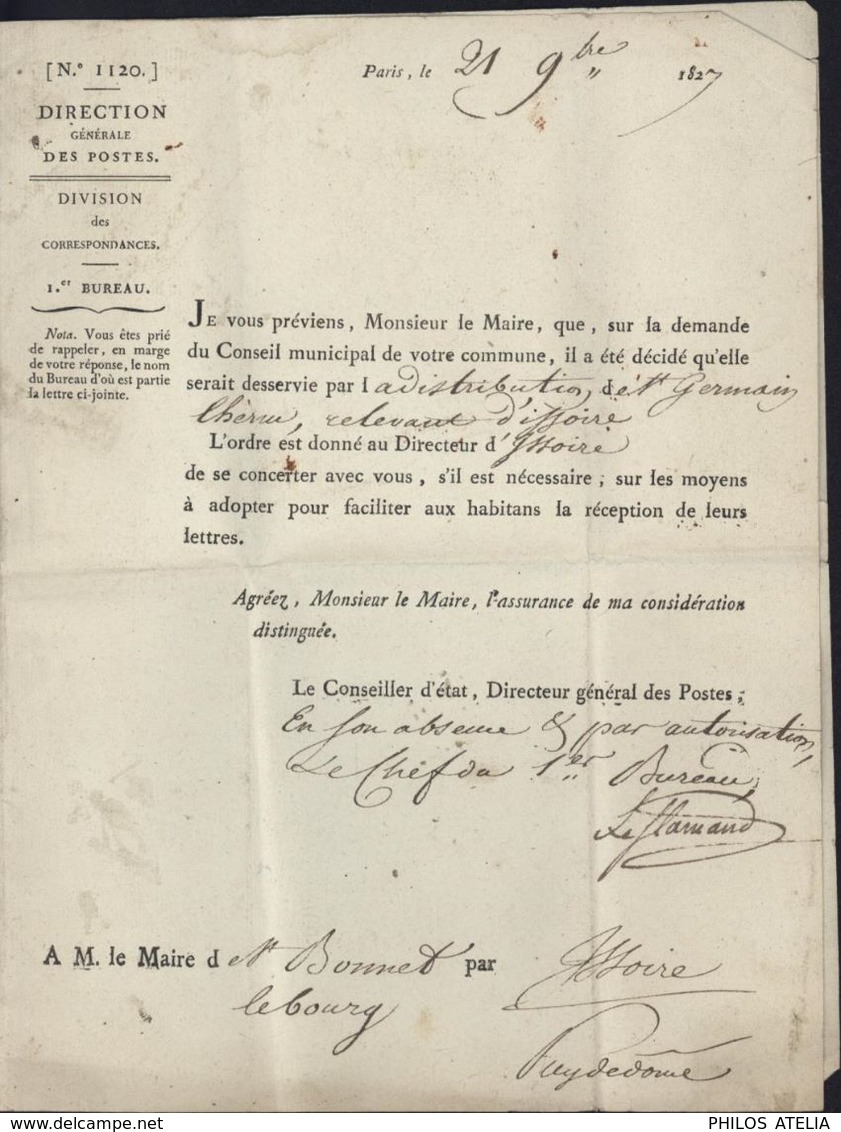 [N.º 1120.]
DIRECTION
GÉNÉRALE
DES POSTES.
DIVISION
des
CORRESPONDANCES.
1.er BUREAU.
Nota. Vous êtes prié
de rappeler, en marge
de votre réponse, le nom
du Bureau d'où est partie
la lettre ci-jointe.
Paris, le 21 9bre 1827
JE vous préviens, Monsieur le Maire, que, sur la demande
du Conseil municipal de votre commune, il a été décidé qu'elle
serait desservie par la distribution de St Germain
lherm, relevant d'issoire
L'ordre est donné au Directeur d'Issoire
de se concerter avec vous, s'il est nécessaire, sur les moyens
à adopter pour faciliter aux habitans la réception de leurs
lettres.
Agréez, Monsieur le Maire, l'assurance de ma considération
distinguée.
Le Conseiller d'état, Directeur général des Postes,
En son absence & par autorisation,
Le Chef du 1er Bureau,
Leflamand
A M. le Maire de St Bonnet par Issoire
le bourg
Puydedôme
PHILOS ATELIA